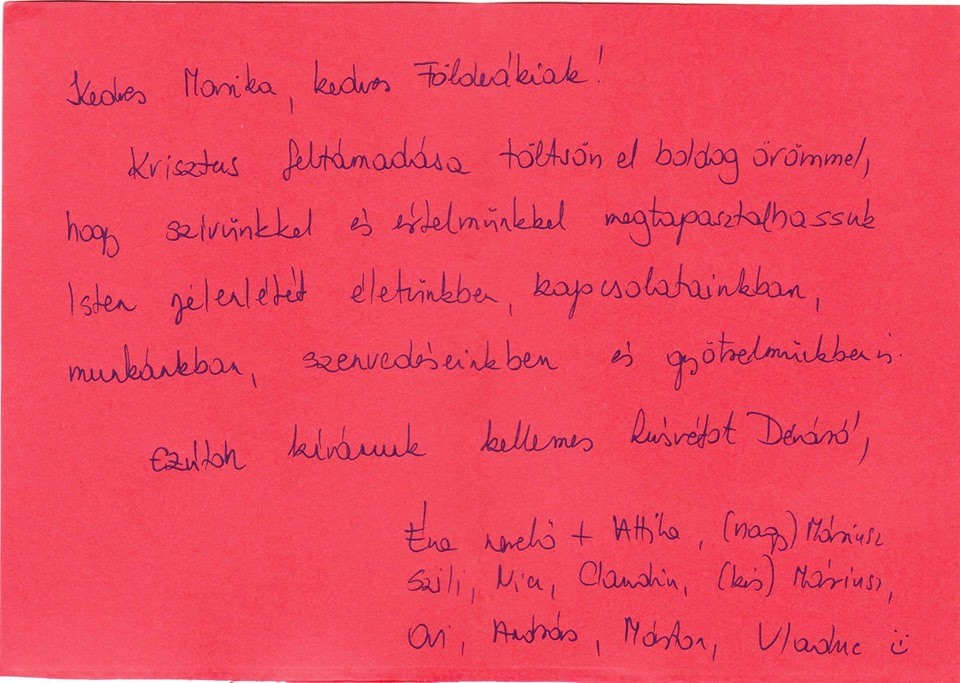 Kedves Monika, kedves Földeákiak!
Krisztus feltámadása töltsön el boldog örömmel,
hogy szívünkkel és értelmünkkel megtapasztalhassuk
Isten jelenlétét életünkben, kapcsolatainkban,
munkánkban, szenvedéseinkben és gyötrelmünkben is.
Ezúton kívánunk kellemes húsvétot Déváról,
Éva nevelő + Attila, (nagy) Máriusz
Szili, Nicu, Claudiu, (kis) Máriusz,
Ovi, András, Márton, Vladuc